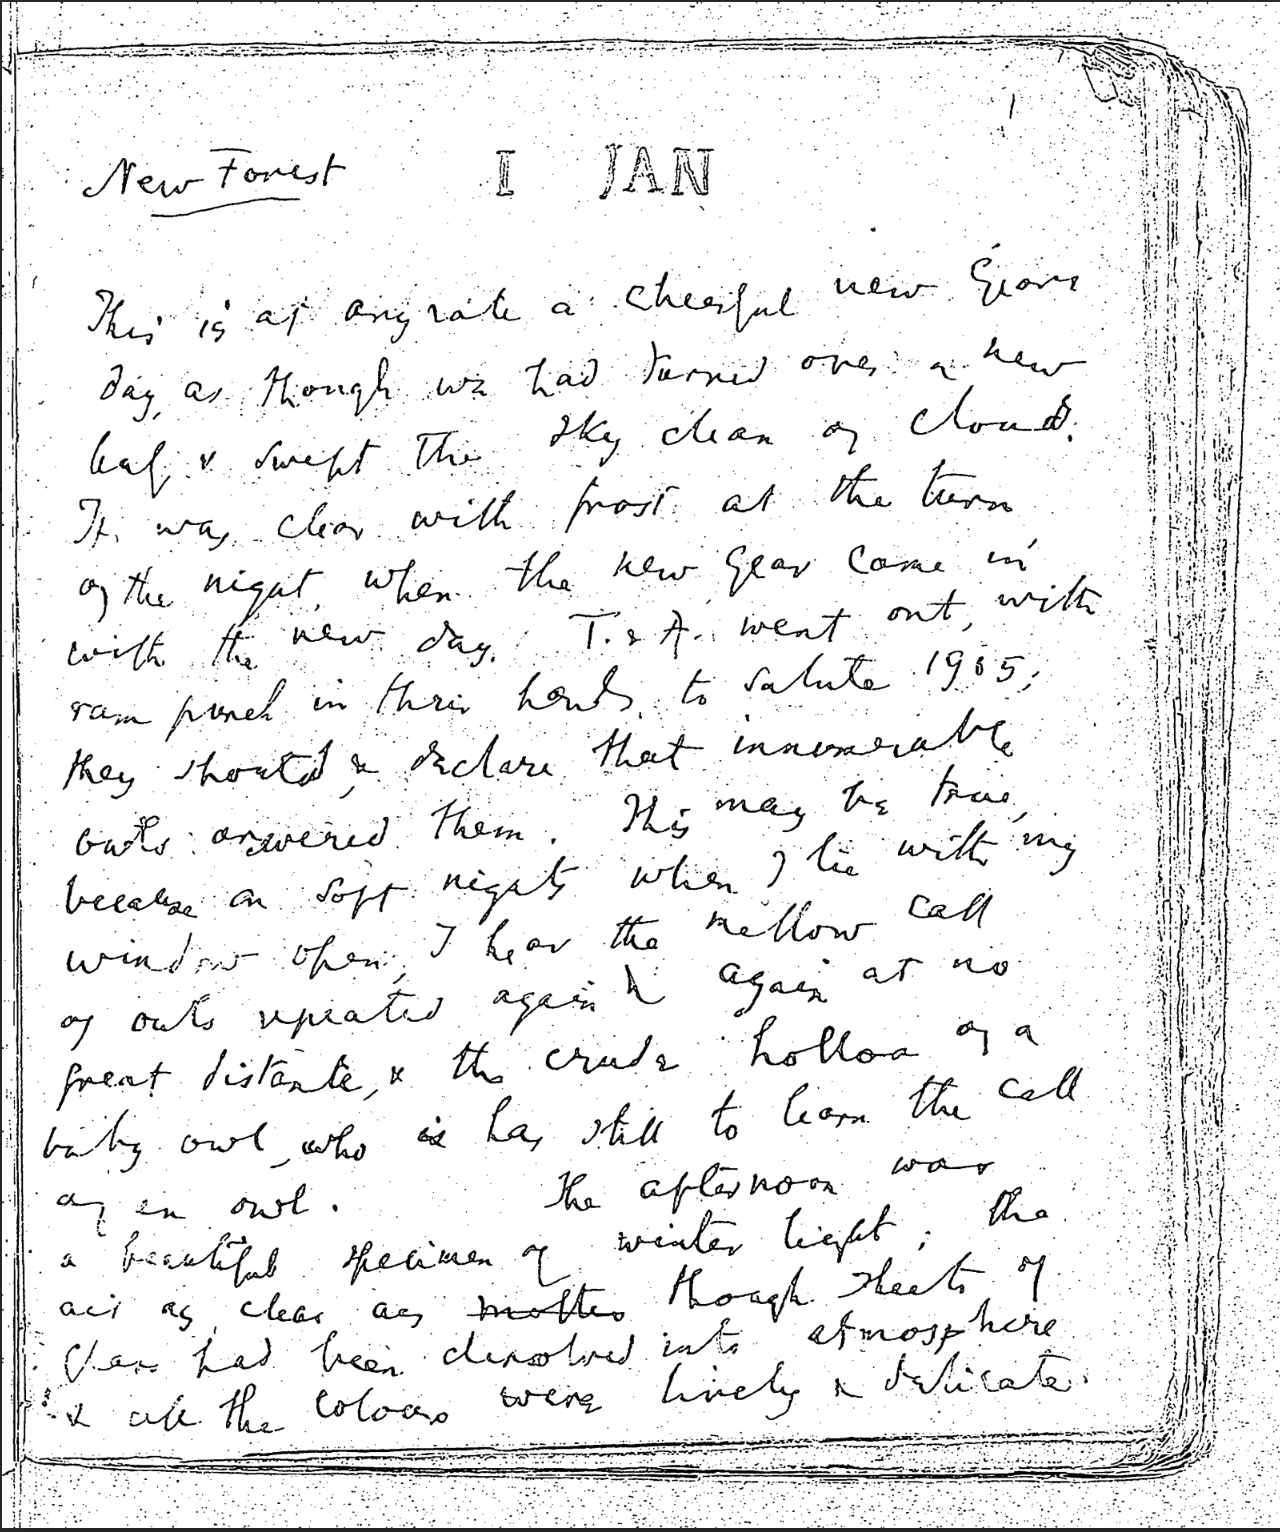 New Forest I JAN
This is at any rate a cheerful new Years
day, as though we had turned over a new
leaf, & swept the sky clean of cloud.
It was clear with frost at the turn
of the night, when the new year came in
with the new day. T. & A. went out, with
rum punch in their hands, to salute 1905;
they shouted, & declare that innumerable
owls answered them. This may be true,
because on soft nights when I lie with my
window open, I hear the mellow call
of owls repeated again & again at no
great distance, & the crude holloa of a
baby owl, who is has still to learn the call
of an owl. The afternoon was
a beautiful specimen of winter light; the
air as clear as though sheets of
glass had been dissolved into atmosphere
& all the colours were lively & delicate.